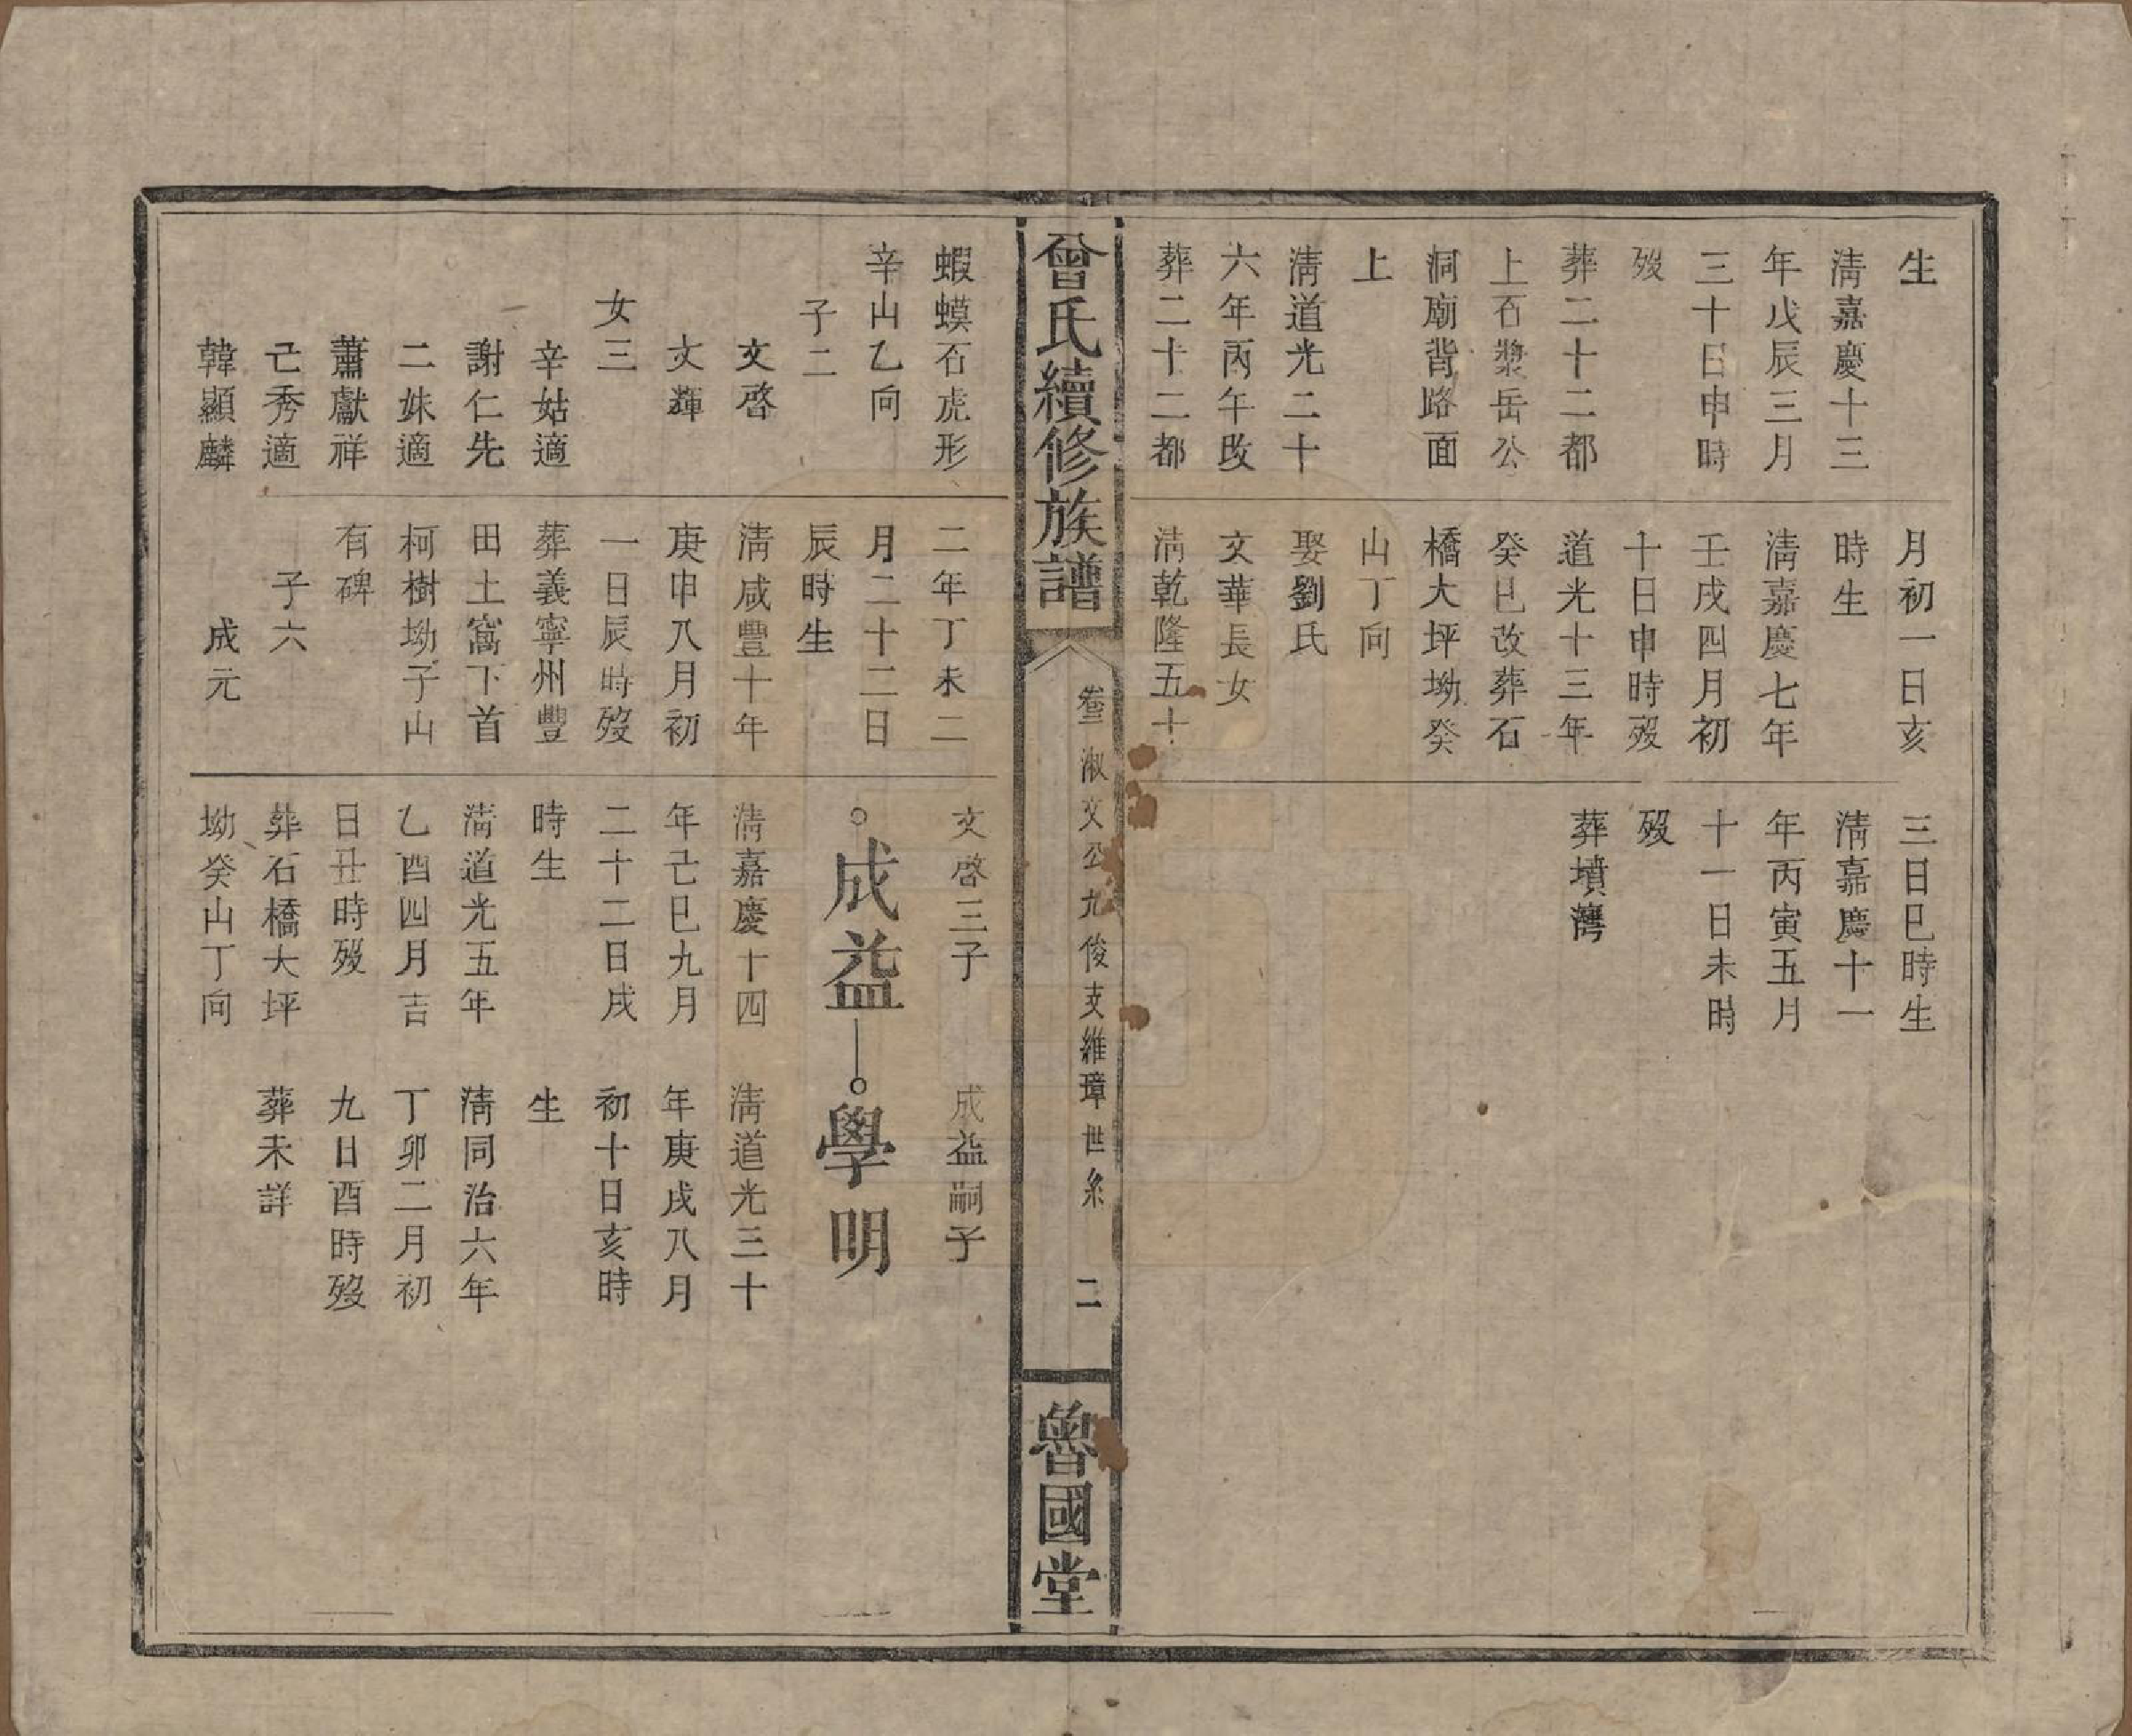 生
清嘉慶十三
年戊辰三月
三十日申時
歿
葬二十二都
上石漿岳公
洞廟背路面
上
清道光二十
六年丙午改
葬二十二都
月初一日亥
時生
清嘉慶七年
壬戌四月初
十日申時歿
道光十三年
癸巳改葬石
橋大坪坳癸
山丁向
娶劉氏
文華長女
清乾隆五十
三日巳時生
清嘉慶十一
年丙寅五月
十一日未時
歿
葬墳灣
曾氏續修族譜
卷三 淑文公九俊支維璋世系 二
魯國堂
蝦蟆石虎形
辛山乙向
子二
文啓
文輝
女三
辛姑適
謝仁先
二妹適
蕭獻祥
己秀適
韓顯麟
二年丁未二
月二十二日
辰時生
清咸豐十年
庚申八月初
一日辰時歿
葬義寧州豐
田土窩下首
柯樹坳子山
有碑
子六
成元
文啓三子
成益
清嘉慶十四
年己巳九月
二十二日戌
時生
清道光五年
乙酉四月吉
日丑時歿
葬石橋大坪
坳癸山丁向
成益嗣子
學明
清道光三十
年庚戌八月
初十日亥時
生
清同治六年
丁卯二月初
九日酉時歿
葬未詳